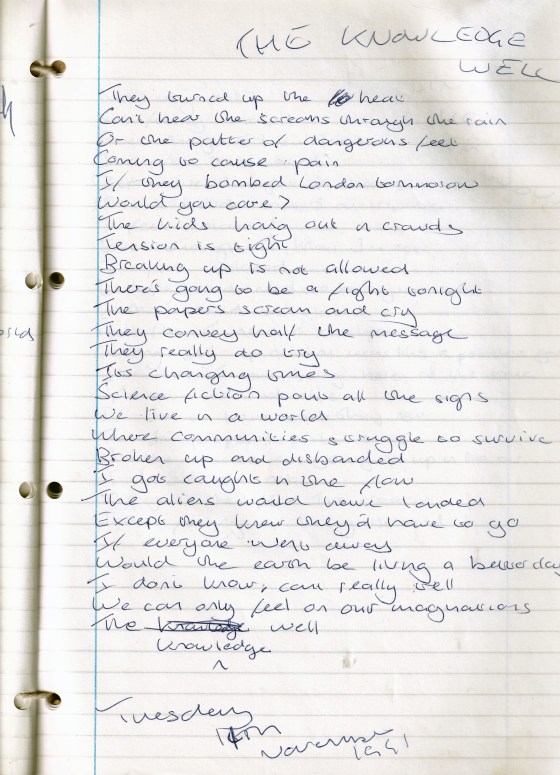 THE KNOWLEDGE
WELL
They turned up the heat
Can't hear the screams through the rain
Or the patter of dangerous feet
Coming to cause pain
If they bombed London tommorow
Would you care?
The kids hang out in crowds
Tension is tight
Breaking up is not allowed
There's going to be a fight tonight
The papers scream and cry
They convey half the message
They really do try
Its changing times
Science fiction point all the signs
We live in a world
Where communities struggle to survive
Broken up and disbanded
I got caught in the flow
The aliens would have landed
Except they knew they'd have to go
If everyone went away
Would the earth be living a better day
I don't know, cant really tell
We can only feel on our imaginations
The knowledge well
Knowledge
Tuesday
November
1991